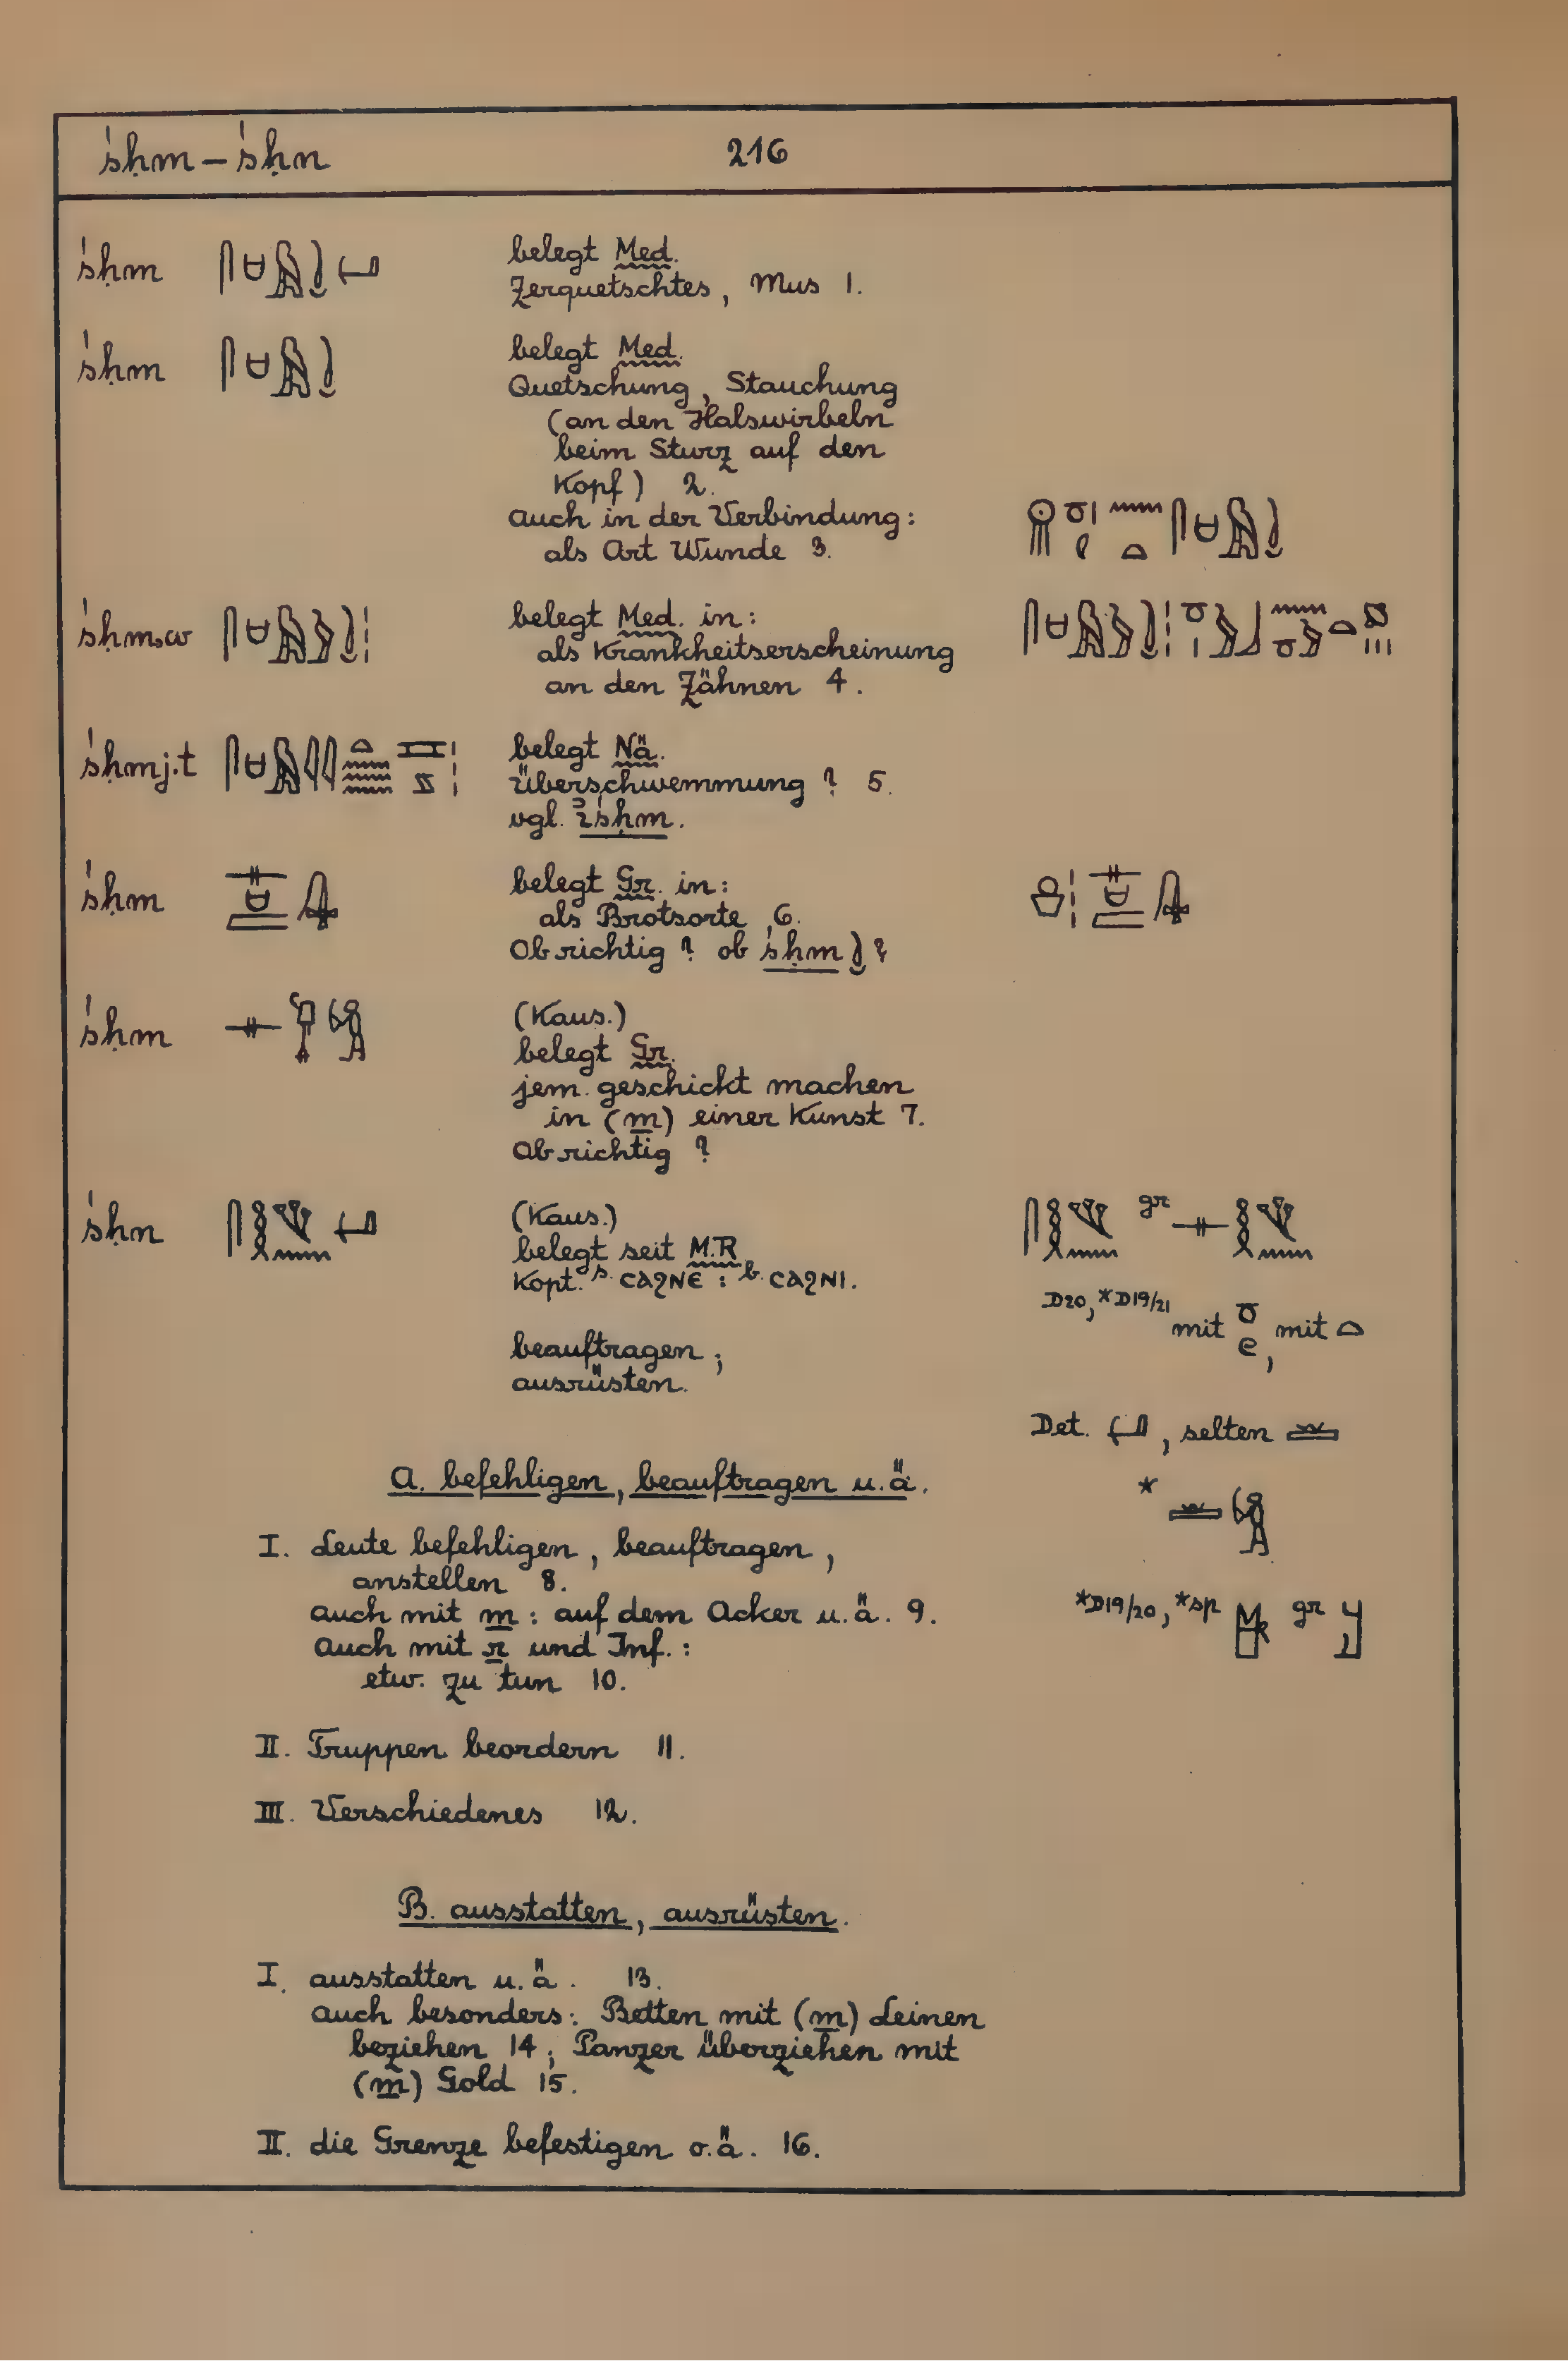 śḥm – śḥn 216
śḥm belegt Med.
Zerquetschtes, Mus 1.
śḥm belegt Med.
Quetschung, Stauchung
(an den Halswirbeln
beim Sturz auf den
Kopf) 2.
auch in der Verbindung:
als Art Wunde 3.
śḥm.w belegt Med. in:
als Krankheitserscheinung
an den Zähnen 4.
śḥmj.t belegt Nä.
Überschwemmung ? 5.
vgl. išḥm.
śḥm belegt Gr. in:
als Brotsorte 6.
Ob richtig ? ob śḥm ?
śḥm (Kaus.)
belegt Gr.
jem. geschickt machen
in (m) einer Kunst 7.
Ob richtig ?
śḥn (Kaus.) gr
belegt seit M.R
Kopt. s. ⲥⲁϩⲛⲉ : b. ⲥⲁϩⲛⲓ.
D20, *D19/21 mit , mit
beauftragen ;
ausrüsten.
Det. , selten
A. befehligen, beauftragen u.ä.
*
I. Leute befehligen, beauftragen,
anstellen 8.
auch mit m : auf dem Acker u.ä. 9.
*D19/20, *sp gr
auch mit r und Inf. :
etw. zu tun 10.
II. Truppen beordern 11.
III. Verschiedenes 12.
B. ausstatten, ausrüsten.
I. ausstatten u.ä. 13.
auch besonders: Betten mit (m) Leinen
beziehen 14; Panzer überziehen mit
(m) Gold 15.
II. die Grenze befestigen o.ä. 16.